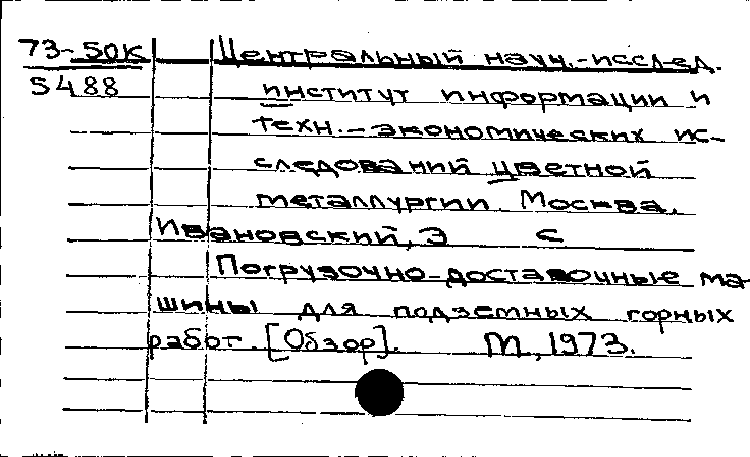 73-50К Центральный науч.-исслед.
5488 институт информации и
техн.-экономических ис-
следований цветной
металлургии. Москва.
Ивановский, Э С
Погрузочно-доставочные ма-
шины для подземных горных
работ. [Обзор]. М., 1973.